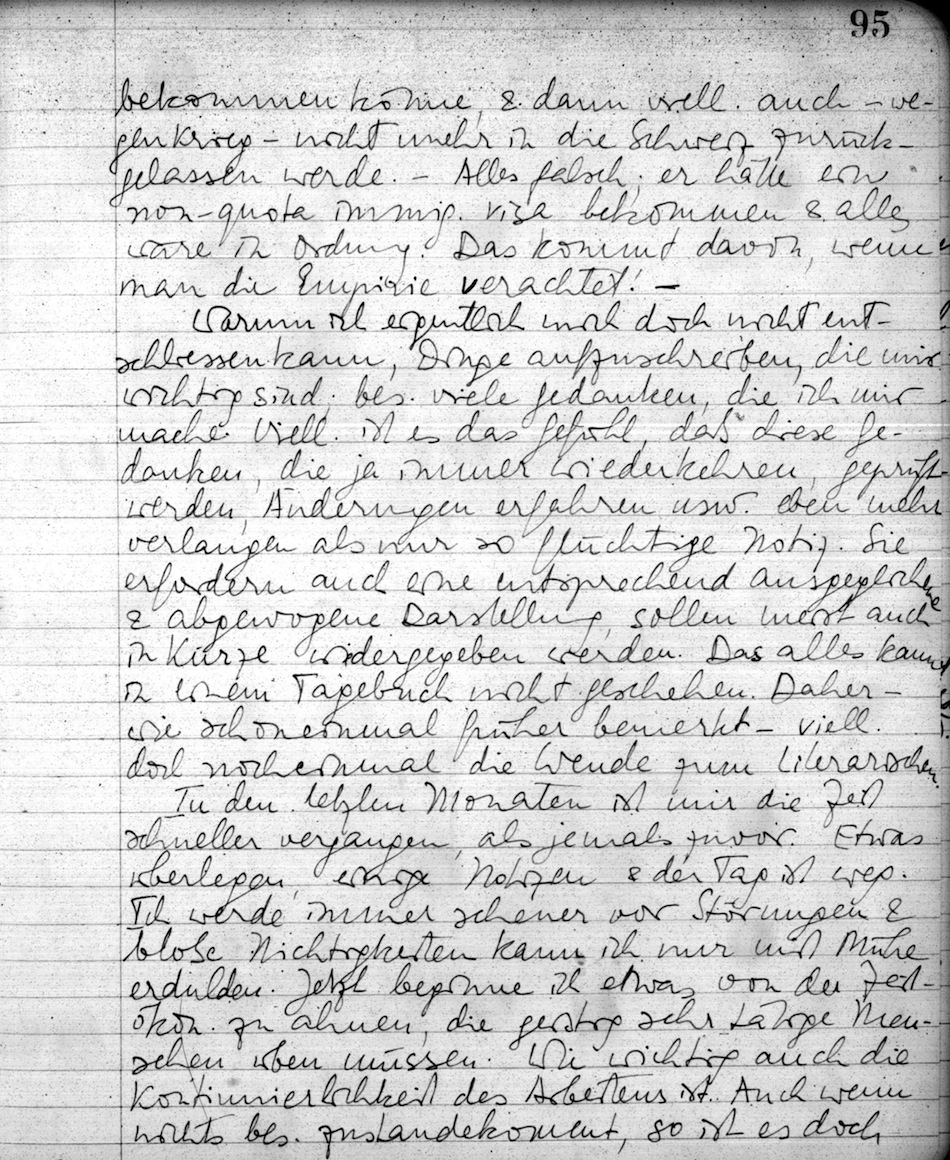 95
bekommen könne, & dann viell. auch – we-
gen Krieg – nicht mehr in die Schweiz zurück-
gelassen werde. – Alles falsch; er hätte ein
non-quota immig. visa bekommen & alles
wäre in Ordnung. Das kommt davon, wenn
man die Empirie verachtet! –
Warum ich eigentlich mich doch nicht ent-
schliessen kann, Dinge aufzuschreiben, die mir
wichtig sind; bes. viele Gedanken, die ich mir
mache. Viell. ist es das Gefühl, daß diese Ge-
danken, die ja immer wiederkehren, geprüft
werden, Änderungen erfahren usw. eben mehr
verlangen als nur so flüchtige Notiz. Sie
erfordern auch eine entsprechend ausgeglichene
& abgewogene Darstellung, sollen meist auch
in Kürze widergegeben werden. Das alles kann
in einem Tagebuch nicht geschehen. Daher –
wie schon einmal früher bemerkt – viell.
doch noch einmal die Wende zum Literarischen.
In den letzten Monaten ist mir die Zeit
schneller vergangen, als jemals zuvor. Etwas
überlegen, einige Notizen & der Tag ist weg.
Ich werde immer scheuer vor Störungen &
bloße Nichtigkeiten kann ich nur mit Mühe
erdulden. Jetzt beginne ich etwas von der Zeit-
ökon. zu ahnen, die geistig sehr tätige Men-
schen üben müssen. Wie wichtig auch die
Kontinuierlichkeit des Arbeitens ist. Auch wenn
nichts bes. zustandekommt, so ist es doch